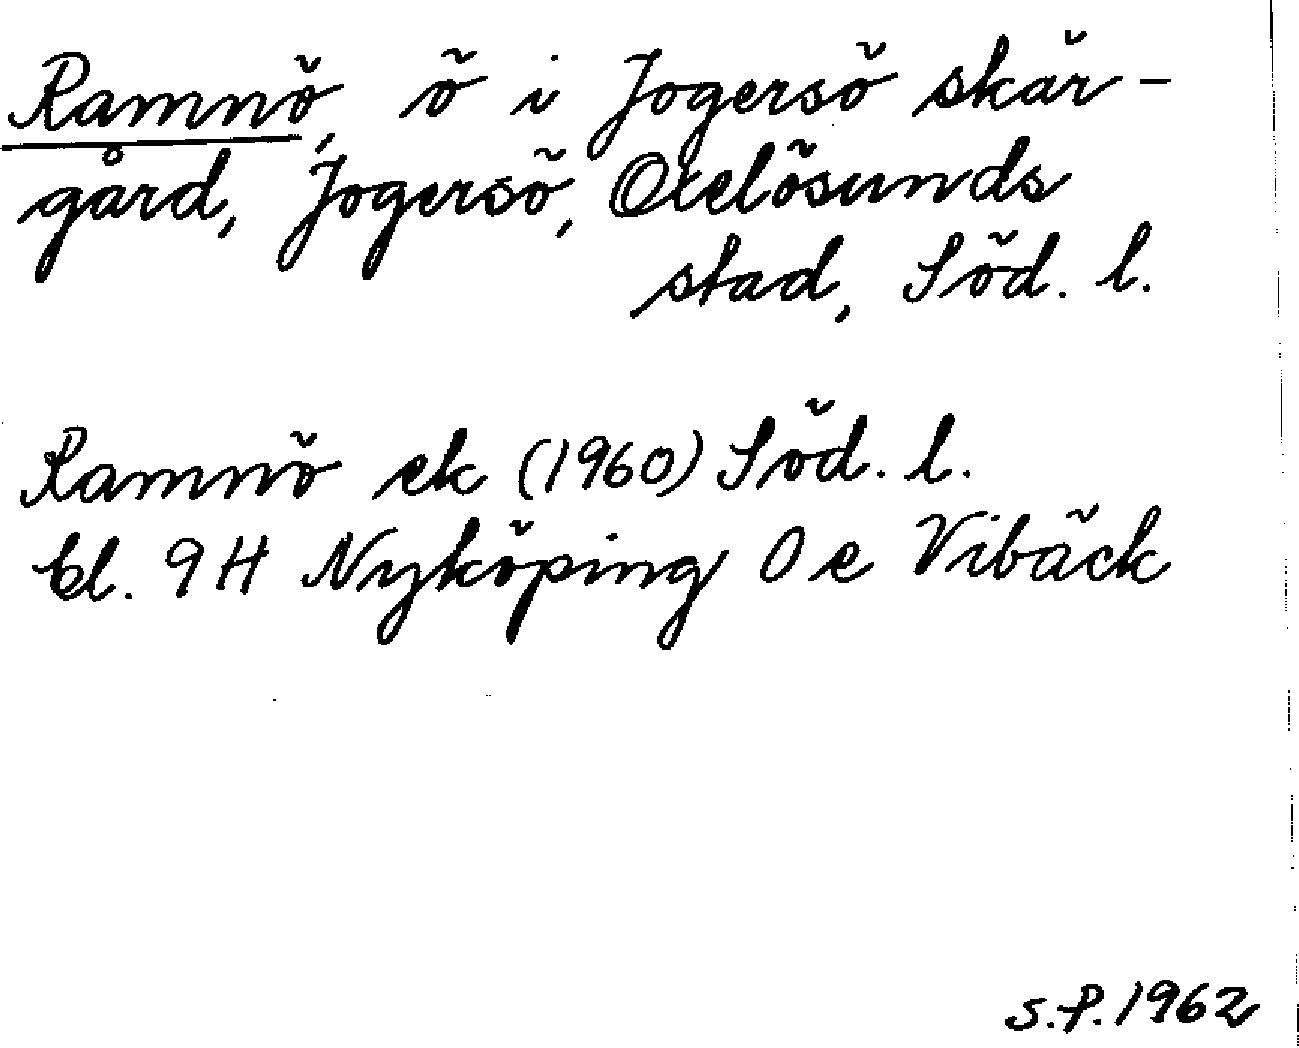 Ramnö, ö i Jogersö skär-
gård, Jogersö, Oxelösunds
stad, Söd. l.
Ramnö ek (1960) Söd. l.
bl. 9H Nyköping 0e Vibäck
S.P. 1962